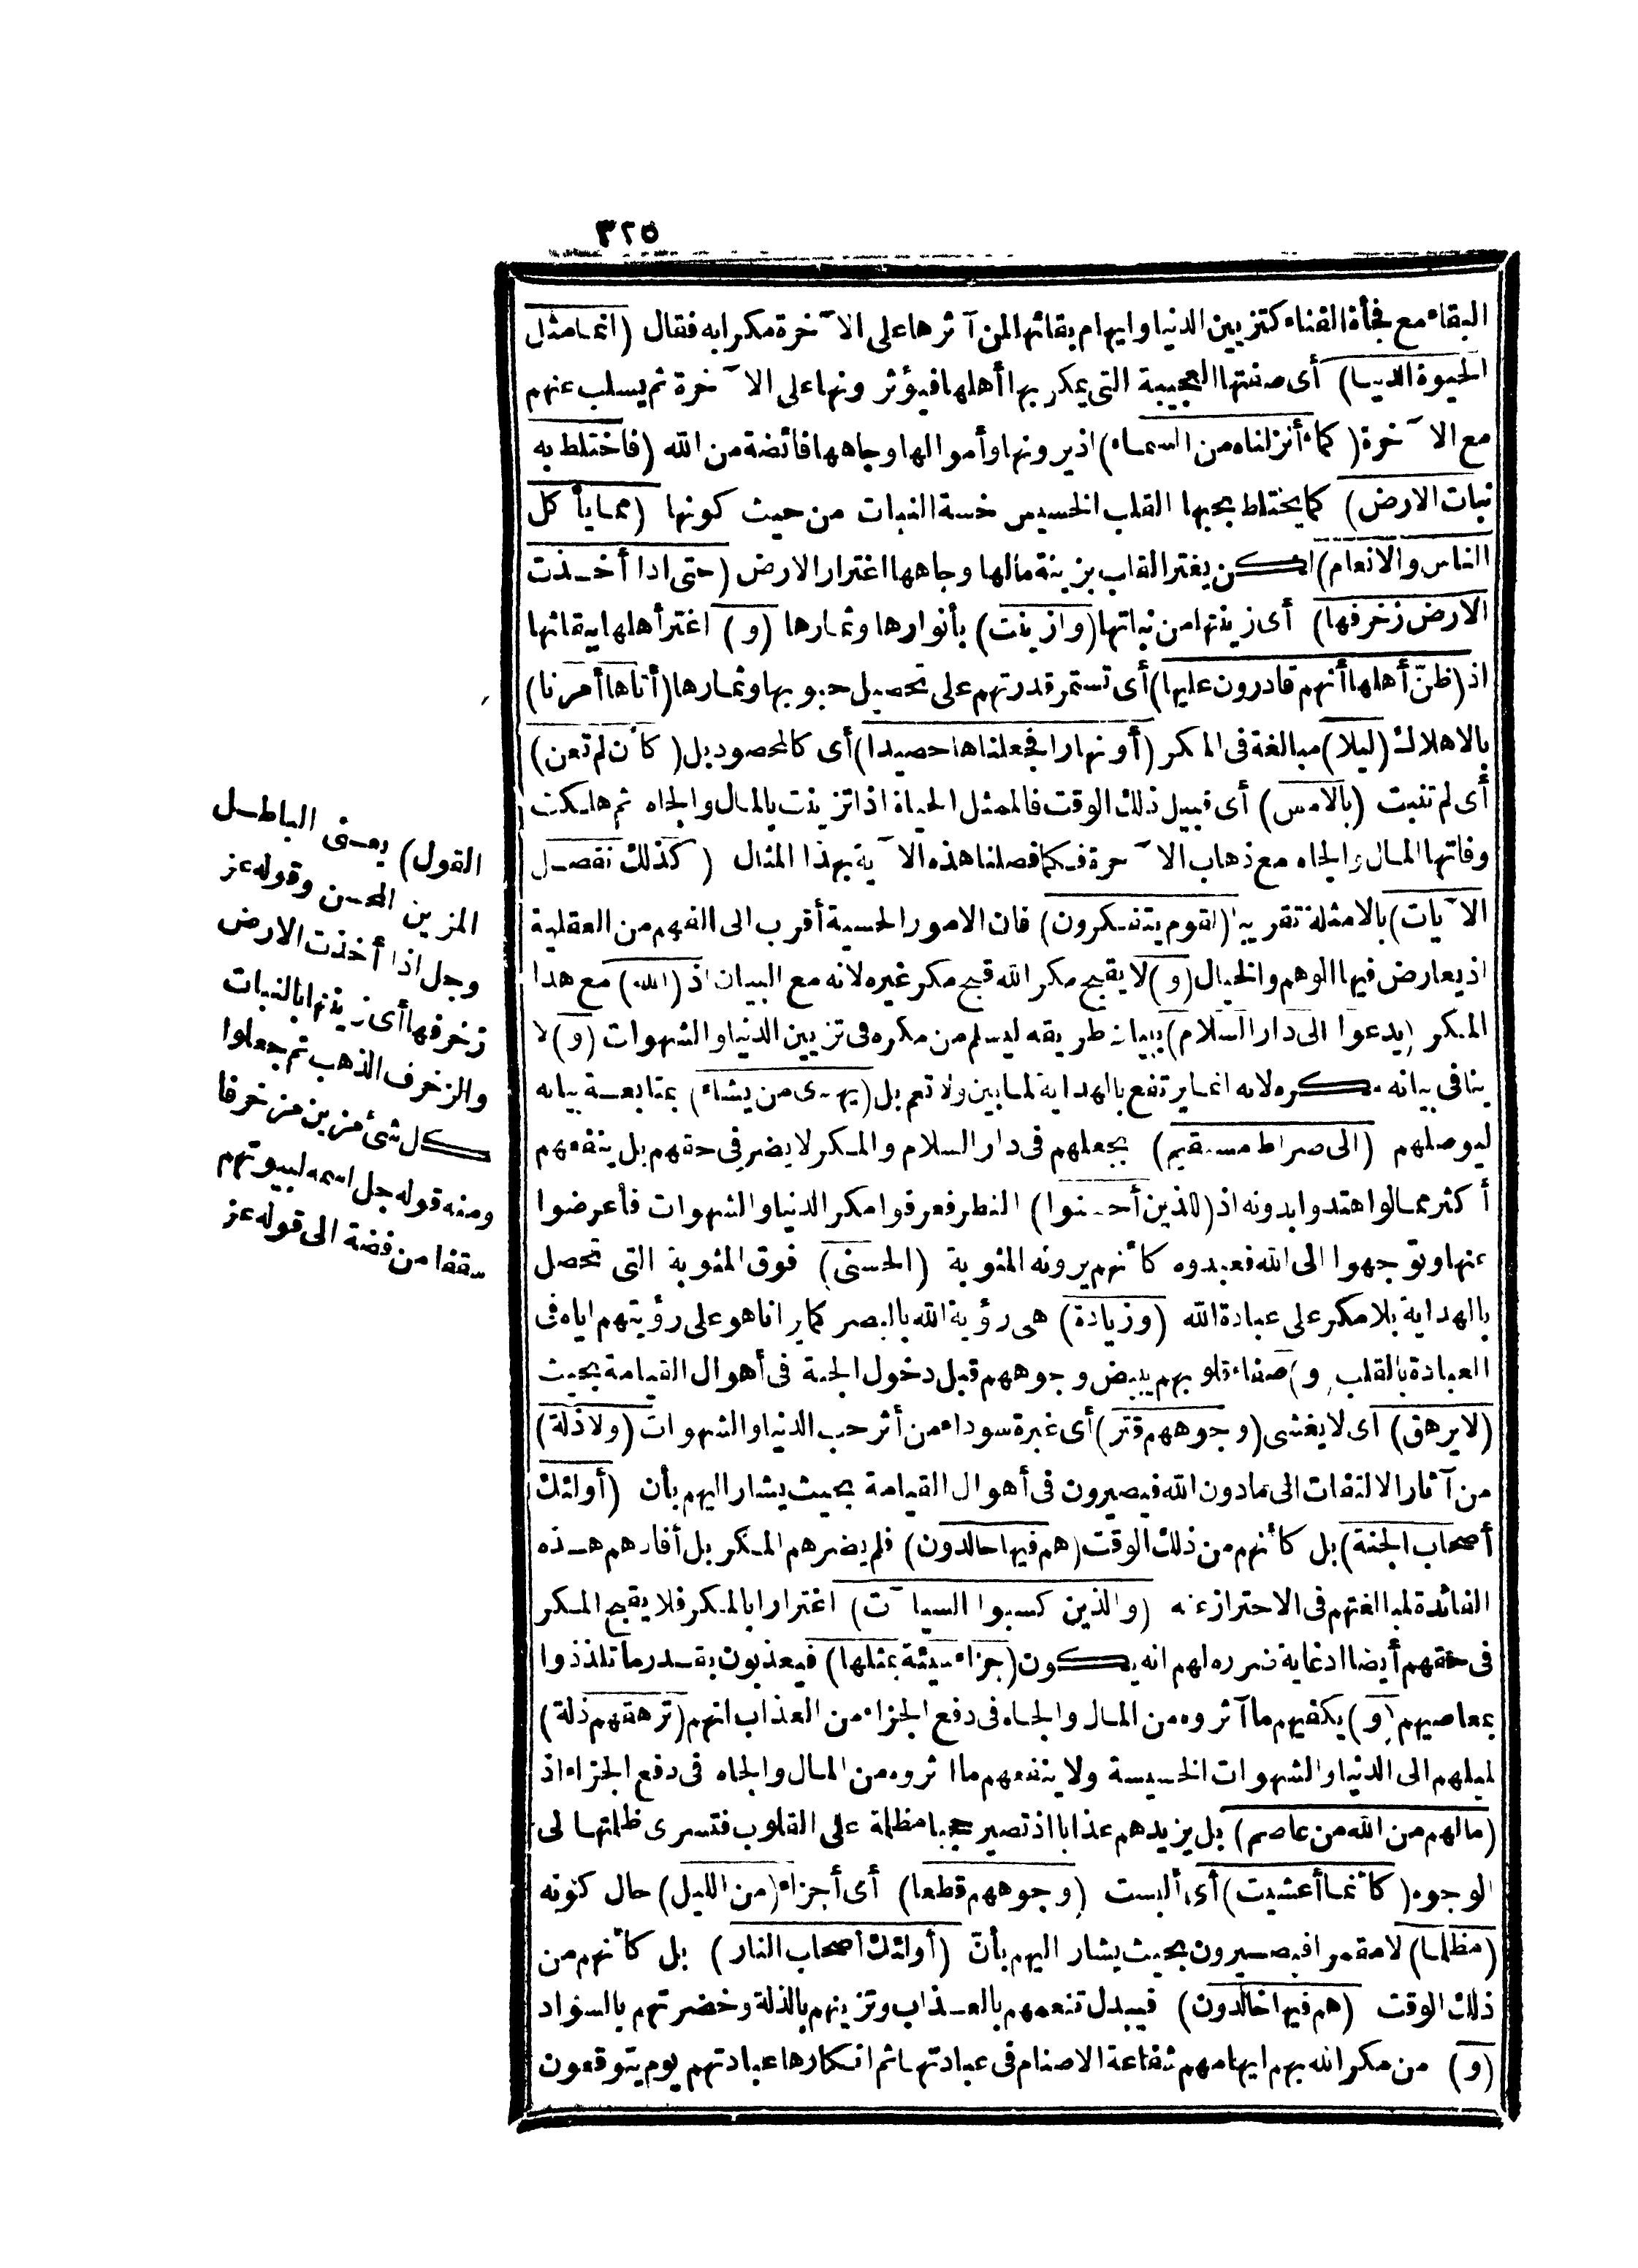 ٣٢٥
البقاء مع فجأة الفناء كتزيين الدنيا وايهام بقائها لمن آثرها على الآخرة مكرا به فقال (انما مثل
الحيوة الدنيا) أى صفتها العجيبة التى يمكر بها أهلها فيؤثرونها على الآخرة ثم يسلب عنهم
مع الآخرة (كماء أنزلناه من السماء) اذ يرونها وأموالها وجاهها فائضة من الله (فاختلط به
نبات الارض) كما يختلط بحبها القلب الخسيس خسة النبات من حيث كونها (مما يأكل
الناس والانعام) لكن يغتر القلب بزينة مالها وجاهها اغترار الارض (حتى اذا أخذت
الارض زخرفها) أى زينتها من نباتها (وازينت) بأنوارها وثمارها (و) اغتر أهلها ببقائها
اذ (ظنّ أهلها أنهم قادرون عليها) أى تستمر قدرتهم على تحصيل حبوبها وثمارها (أتاها أمرنا)
بالاهلاك (ليلا) مبالغة فى المكر (أو نهارا فجعلناها حصيدا) أى كالمحصود بل (كأن لم تغن)
أى لم تنبت (بالامس) أى قبيل ذلك الوقت فالممثل الحياة اذا تزينت بالمال والجاه ثم هلكت
وفاتها المال والجاه مع ذهاب الآخرة فكما فصلنا هذه الآية بهذا المثال (كذلك نفصل
الآيات) بالامثلة تقريبا (لقوم يتفكرون) فان الامور الحسية أقرب الى الفهم من العقلية
اذ يعارض فيها الوهم والخيال (و) لا يقبح مكر الله قبح مكر غيره لانه مع البيان اذ (الله) مع هذا
المكر (يدعوا الى دار السلام) ببيان طريقه ليسلم من مكره فى تزيين الدنيا والشهوات (و) لا
ينافى بيانه مكره لانه انما يرتفع بالهداية لما بين ولا تعم بل (يهدى من يشاء) بمتابعة بيانه
ليوصلهم (الى صراط مستقيم) بجعلهم فى دار السلام والمكر لا يضر فى حقهم بل ينفعهم
أكثر مما لو اهتدوا بدونه اذ (للذين أحسنوا) النظر فعرفوا مكر الدنيا والشهوات فأعرضوا
عنها وتوجهوا الى الله فعبدوه كأنهم يرونه المثوبة (الحسنى) فوق المثوبة التى تحصل
بالهداية بلا مكر على عبادة الله (وزيادة) هى رؤية الله بالبصر كما يرانا هو على رؤيتهم اياه فى
العبادة بالقلب (و) صفاء قلوبهم يبيض وجوههم قبل دخول الجنة فى أهوال القيامة بحيث
(لا يرهق) أى لا يغشى (وجوههم قتر) أى غبرة سوداء من أثر حب الدنيا والشهوات (ولا ذلة)
من آثار الالتفات الى ما دون الله فيصيرون فى أهوال القيامة بحيث يشار اليهم بأن (أولئك
أصحاب الجنة) بل كأنهم من ذلك الوقت (هم فيها خالدون) فلم يضرهم المكر بل أفادهم هذه
الفائدة لمبالغتهم فى الاحتراز عنه (والذين كسبوا السيآت) اغترارا بالمكر فلا يقبح المكر
فى حقهم أيضا اذ غاية ضرره لهم انه يكون (جزاء سيئة بمثلها) فيعذبون بقدر ما تلذذوا
بمعاصيهم (و) يكفيهم ما آثروه من المال والجاه فى دفع الجزاء من العذاب انهم (ترهقهم ذلة)
لميلهم الى الدنيا والشهوات الخسيسة ولا ينفعهم ما اثروه من المال والجاه فى دفع الجزاء اذ
(مالهم من الله من عاصم) بل يزيدهم عذابا اذ تصير حجبا مظلمة على القلوب فتسرى ظلمتها الى
الوجوه (كأنما أغشيت) أى ألبست (وجوههم قطعا) أى أجزاء (من الليل) حال كونه
(مظلما) لا مقمرا فيصيرون بحيث يشار اليهم بأنّ (أولئك أصحاب النار) بل كأنهم من
ذلك الوقت (هم فيها خالدون) فيبدل تنعمهم بالعذاب وتزينهم بالذلة وخضرتهم بالسواد
(و) من مكر الله بهم ايهامهم شفاعة الاصنام فى عبادتها ثم انكارها عبادتهم يوم يتوقعون
القول) يعنى الباطل
المزين المحسن وقوله عز
وجل اذا أخذت الارض
زخرفها أى زينتها بالنبات
والزخرف الذهب ثم جعلوا
كل شئ مزين مزخرفا
ومنه قوله جل اسمه لبيوتهم
سقفا من فضة الى قوله عز